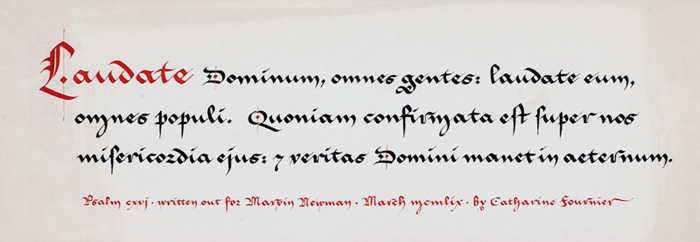 Laudate Dominum, omnes gentes: laudate eum,
omnes populi. Quoniam confirmata est super nos
misericordia ejus: ⁊ veritas Domini manet in aeternum.
Psalm cxvi · written out for Marvin Newman · March mcmlix · by Catharine Fournier